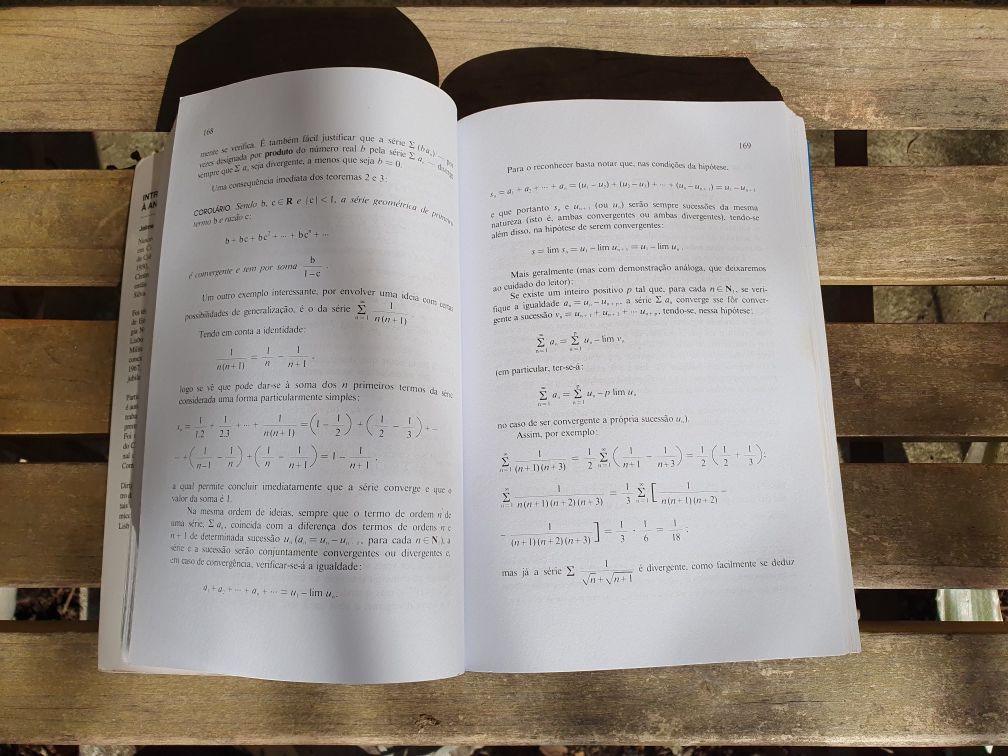 168
mente se verifica. É também fácil justificar que a série Σ (b aₙ) — por
vezes designada por produto do número real b pela série Σ aₙ —
sempre que Σ aₙ seja divergente, a menos que seja b = 0.
Uma consequência imediata dos teoremas 2 e 3:
COROLÁRIO. Sendo b, c ∈ R e |c| < 1, a série geométrica de primeiro
termo b e razão c:
b + bc + bc² + ··· + bcⁿ + ···
é convergente e tem por soma b/(1−c).
Um outro exemplo interessante, por envolver uma ideia com certas
possibilidades de generalização, é o da série Σ_{n=1}^{∞} 1/(n(n+1)).
Tendo em conta a identidade:
1/(n(n+1)) = 1/n − 1/(n+1),
logo se vê que pode dar-se à soma dos n primeiros termos da série
considerada uma forma particularmente simples:
sₙ = 1/1.2 + 1/2.3 + ··· + 1/(n(n+1)) = (1 − 1/2) + (1/2 − 1/3) + ···
··· + (1/(n−1) − 1/n) + (1/n − 1/(n+1)) = 1 − 1/(n+1),
a qual permite concluir imediatamente que a série converge e que o
valor da soma é 1.
Na mesma ordem de ideias, sempre que o termo de ordem n de
uma série, Σ aₙ, coincida com a diferença dos termos de ordens n e
n + 1 de determinada sucessão uₙ (aₙ = uₙ − uₙ₊₁, para cada n ∈ N₁), a
série e a sucessão serão conjuntamente convergentes ou divergentes e,
em caso de convergência, verificar-se-á a igualdade:
a₁ + a₂ + ··· + aₙ + ··· = u₁ − lim uₙ.
169
Para o reconhecer basta notar que, nas condições da hipótese,
sₙ = a₁ + a₂ + ··· + aₙ = (u₁ − u₂) + (u₂ − u₃) + ··· + (uₙ − uₙ₊₁) = u₁ − uₙ₊₁
e que portanto sₙ e uₙ₊₁ (ou uₙ) serão sempre sucessões da mesma
natureza (isto é, ambas convergentes ou ambas divergentes), tendo-se
além disso, na hipótese de serem convergentes:
s = lim sₙ = u₁ − lim uₙ₊₁ = u₁ − lim uₙ.
Mais geralmente (mas com demonstração análoga, que deixaremos
ao cuidado do leitor):
Se existe um inteiro positivo p tal que, para cada n ∈ N₁, se veri-
fique a igualdade aₙ = uₙ − uₙ₊ₚ, a série Σ aₙ converge sse fôr conver-
gente a sucessão vₙ = uₙ₊₁ + uₙ₊₂ + ··· uₙ₊ₚ, tendo-se, nessa hipótese:
Σ_{n=1}^{∞} aₙ = Σ_{n=1}^{p} uₙ − lim vₙ
(em particular, ter-se-á:
Σ_{n=1}^{∞} aₙ = Σ_{n=1}^{p} uₙ − p lim uₙ
no caso de ser convergente a própria sucessão uₙ).
Assim, por exemplo:
Σ_{n=1}^{∞} 1/((n+1)(n+3)) = 1/2 Σ_{n=1}^{∞} (1/(n+1) − 1/(n+3)) = 1/2 (1/2 + 1/3);
Σ_{n=1}^{∞} 1/(n(n+1)(n+2)(n+3)) = 1/3 Σ_{n=1}^{∞} [1/(n(n+1)(n+2)) −
− 1/((n+1)(n+2)(n+3))] = 1/3 · 1/6 = 1/18;
mas já a série Σ 1/(√n + √(n+1)) é divergente, como facilmente se deduz